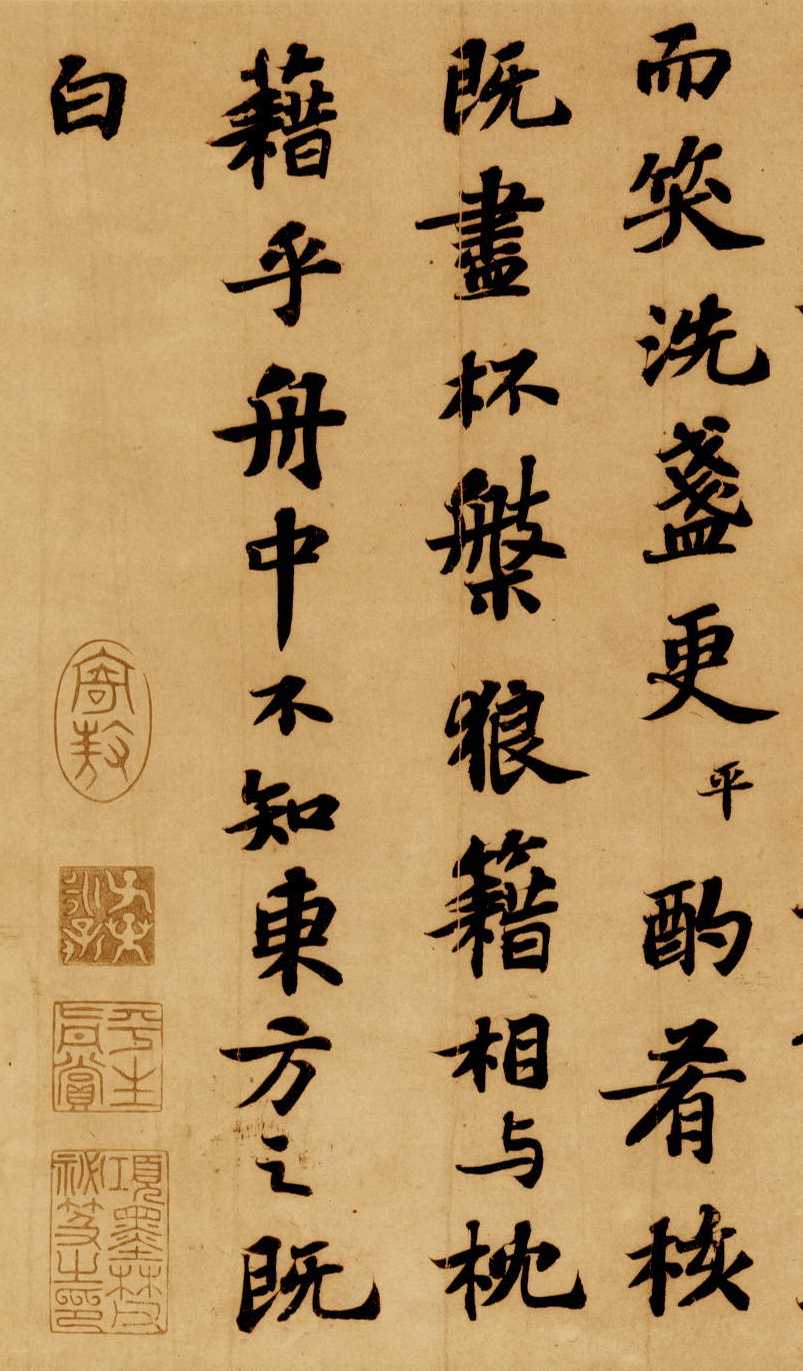 而笑洗盞更平酌肴核
既盡杯槃狼籍相与枕
藉乎舟中不知東方之既
白
寄敖
平生真賞
項墨林父祕笈之印